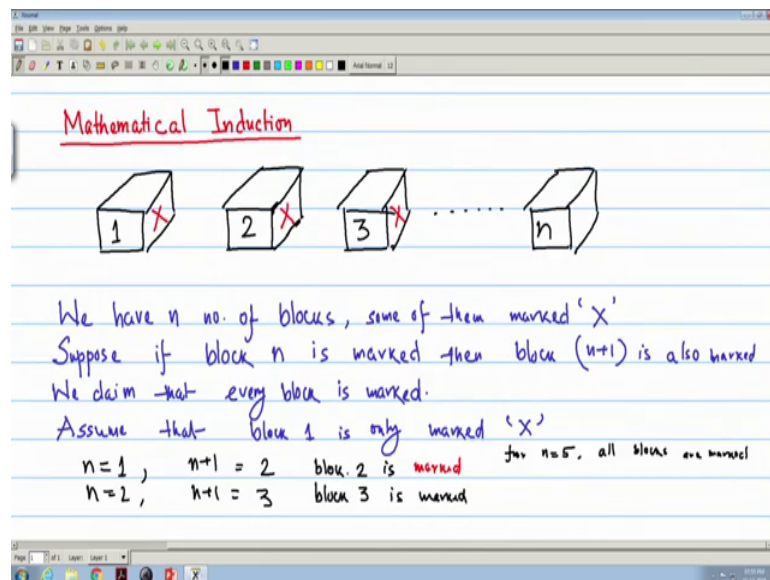 Xournal
File Edit View Page Tools Options Help
Arial Normal 12
Mathematical Induction
1 X 2 X 3 X ...... n
We have n no. of blocks, some of them marked 'X'
Suppose if block n is marked then block (n+1) is also marked
We claim that every block is marked.
Assume that block 1 is only marked 'X'
for n=5, all blocks are marked
n=1, n+1 = 2 block 2 is marked
n=2, n+1 = 3 block 3 is marked
Page 1 of 1 Layer: Layer 1